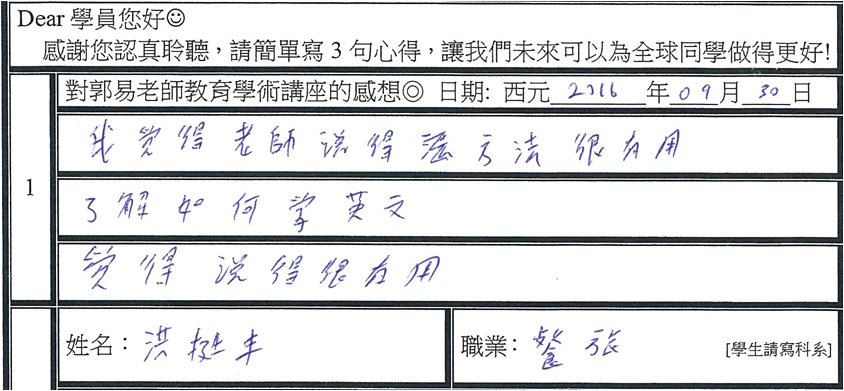 Dear 學員您好☺
感謝您認真聆聽，請簡單寫 3 句心得，讓我們未來可以為全球同學做得更好!
1
對郭易老師教育學術講座的感想◎ 日期: 西元 2016 年 09 月 30 日
我覚得老師説得 方法很有用
了解如何学英文
覚得 説得很有用
姓名：洪挺丰
職業：餐旅 [學生請寫科系]